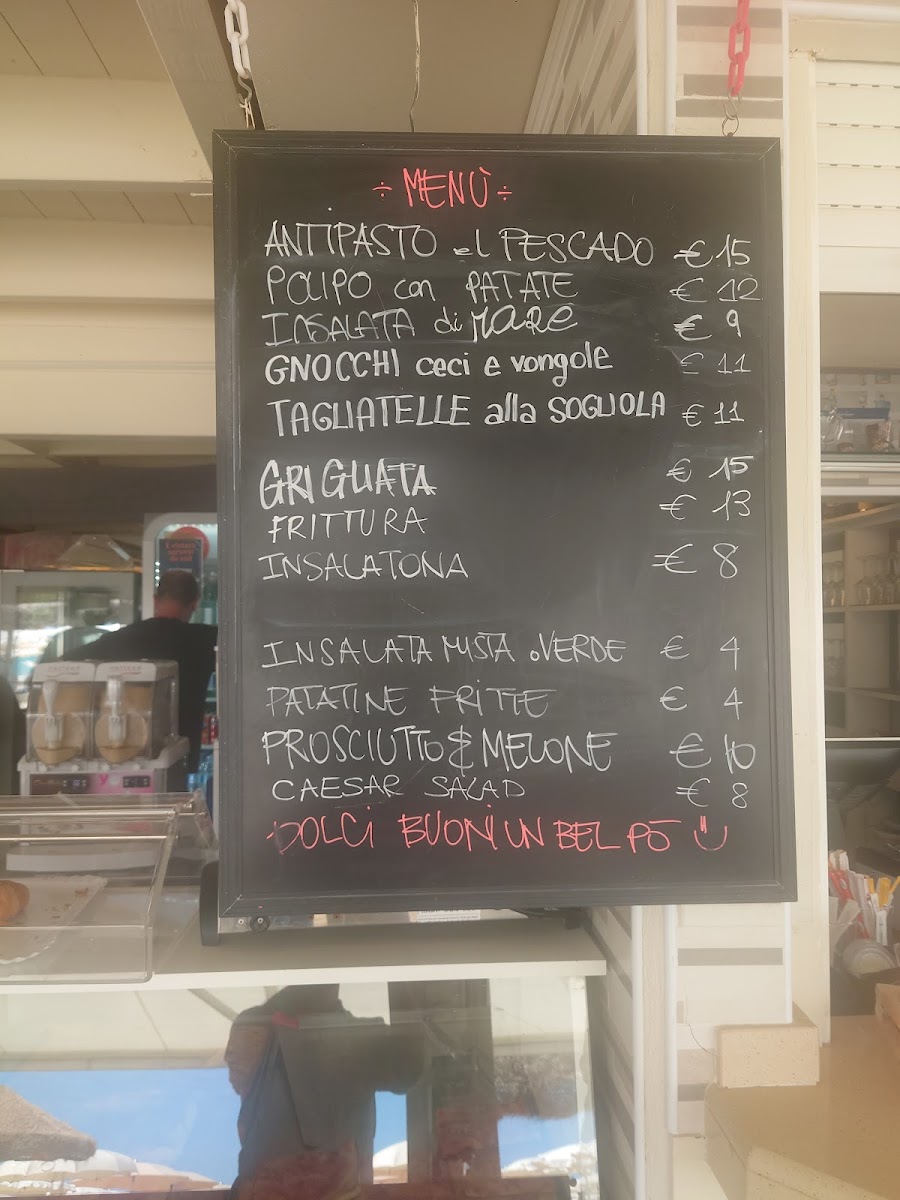 ÷ MENÙ ÷
ANTIPASTO el PESCADO € 15
POLIPO con PATATE € 12
INSALATA di MARE € 9
GNOCCHI ceci e vongole € 11
TAGLIATELLE alla SOGLIOLA € 11
GRIGLIATA € 15
FRITTURA € 13
INSALATONA € 8
INSALATA MISTA o VERDE € 4
PATATINE FRITTE € 4
PROSCIUTTO & MELONE € 10
CAESAR SALAD € 8
DOLCI BUONI UN BEL PÒ